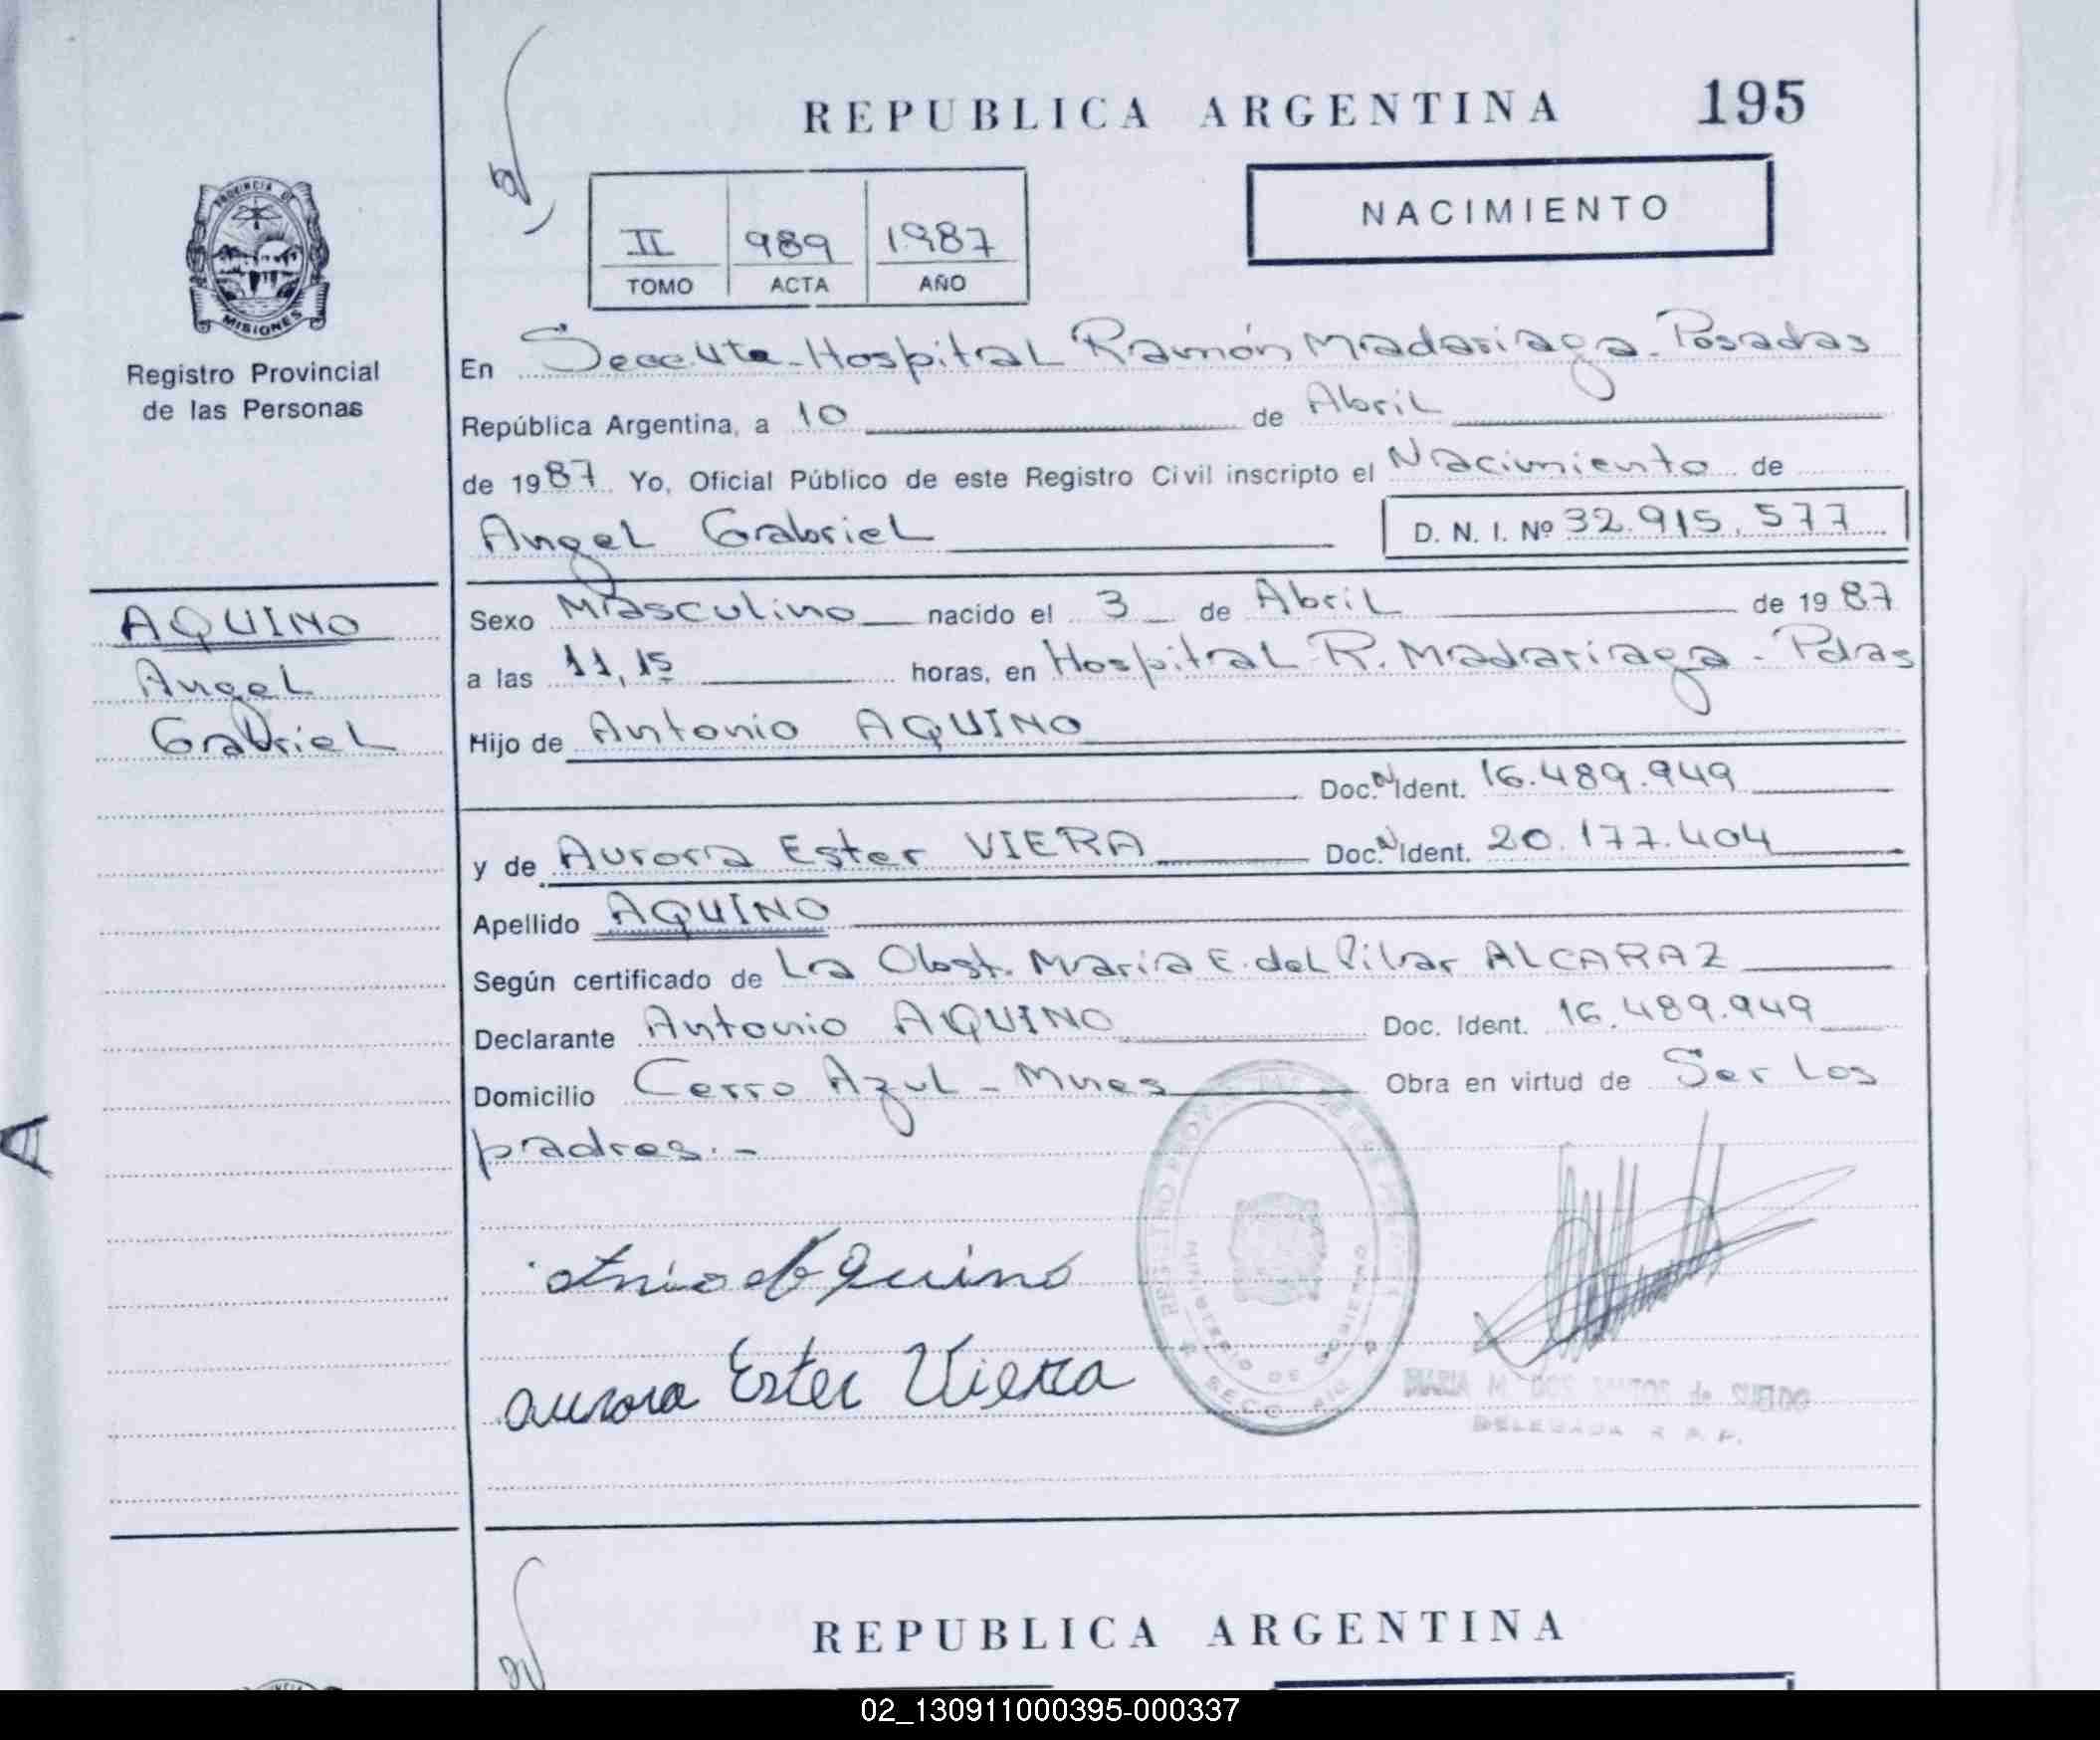 REPUBLICA ARGENTINA 195
PROVINCIA DE
MISIONES
Registro Provincial
de las Personas
II 989 1987
TOMO ACTA AÑO
NACIMIENTO
En Secc. Hospital Ramón Madariaga - Posadas
República Argentina, a 10 de Abril
de 1987 Yo, Oficial Público de este Registro Civil inscripto el Nacimiento de
Angel Gabriel D. N. I. Nº 32.915.577
AQUINO
Angel
Gabriel
Sexo Masculino nacido el 3 de Abril de 1987
a las 11,15 horas, en Hospital R. Madariaga - Pdas
Hijo de Antonio AQUINO
Doc. N Ident. 16.489.949
y de Aurora Ester VIERA Doc. N Ident. 20.177.404
Apellido AQUINO
Según certificado de La Obst. Maria E. del Pilar ALCARAZ
Declarante Antonio AQUINO Doc. Ident. 16.489.949
Domicilio Cerro Azul - Mnes Obra en virtud de Ser los
padres.-
A
Aquino
Aurora Ester Viera
MINISTERIO DE GOBIERNO
MARIA M. DOS SANTOS de SUELDO
DELEGADA R. P. P.
REPUBLICA ARGENTINA
02_130911000395-000337